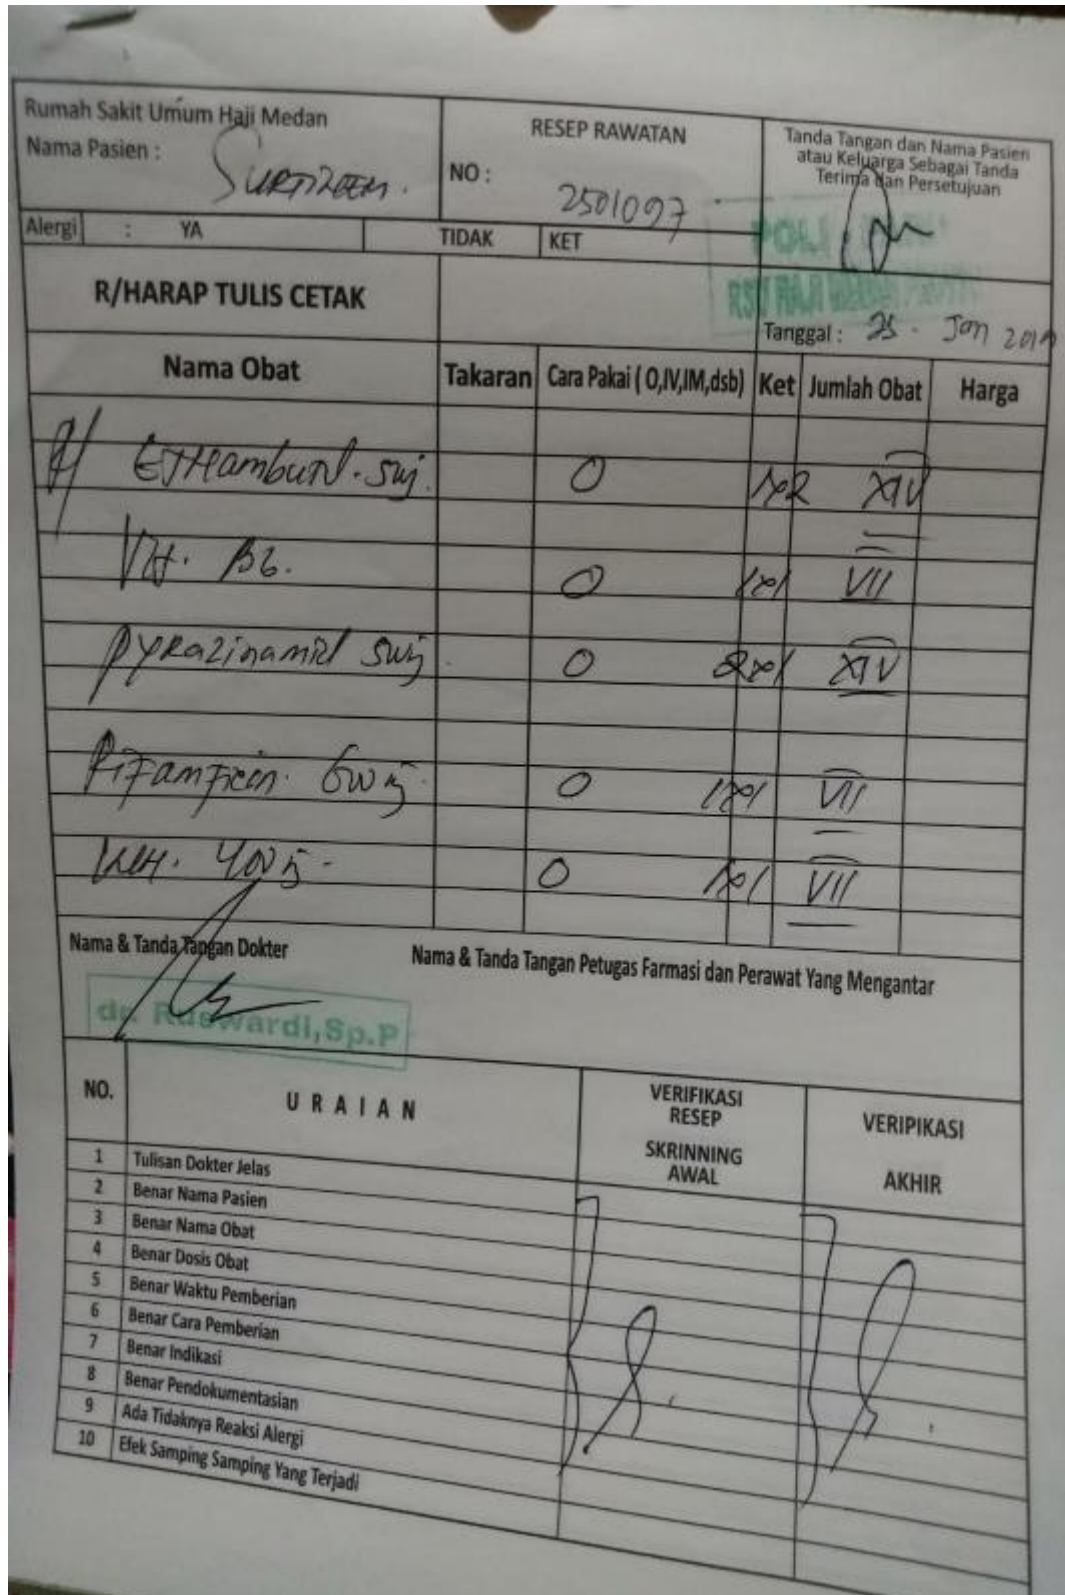 Rumah Sakit Umum Haji Medan
Nama Pasien :
RESEP RAWATAN
NO : 2501097
Tanda Tangan dan Nama Pasien
atau Keluarga Sebagai Tanda
Terima dan Persetujuan
POLI
Alergi : YA TIDAK KET
RSU HAJI MEDAN
R/HARAP TULIS CETAK
Tanggal : 25 - Jan
Nama Obat Takaran Cara Pakai ( O,IV,IM,dsb) Ket Jumlah Obat Harga
R/ Ethambutol. O XIV
Vit. B6. O 1x1 VII
Pyrazinamid O 2x1 XIV
Rifampicin. O 1x1 VII
O 1x1 VII
Nama & Tanda Tangan Dokter
Nama & Tanda Tangan Petugas Farmasi dan Perawat Yang Mengantar
dr. Ruswardi,Sp.P
NO. URAIAN VERIFIKASI
RESEP
SKRINNING
AWAL
VERIPIKASI
AKHIR
1 Tulisan Dokter Jelas
2 Benar Nama Pasien
3 Benar Nama Obat
4 Benar Dosis Obat
5 Benar Waktu Pemberian
6 Benar Cara Pemberian
7 Benar Indikasi
8 Benar Pendokumentasian
9 Ada Tidaknya Reaksi Alergi
10 Efek Samping Samping Yang Terjadi